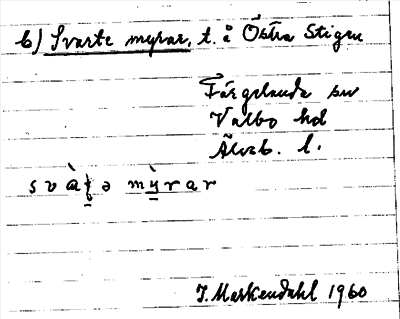 b) Svarte myrar, t. å Östra Stigen
Färgelanda sn
Valbo hd
Älvsb. l.
svàṭə mỳrar
J. Markendahl 1960